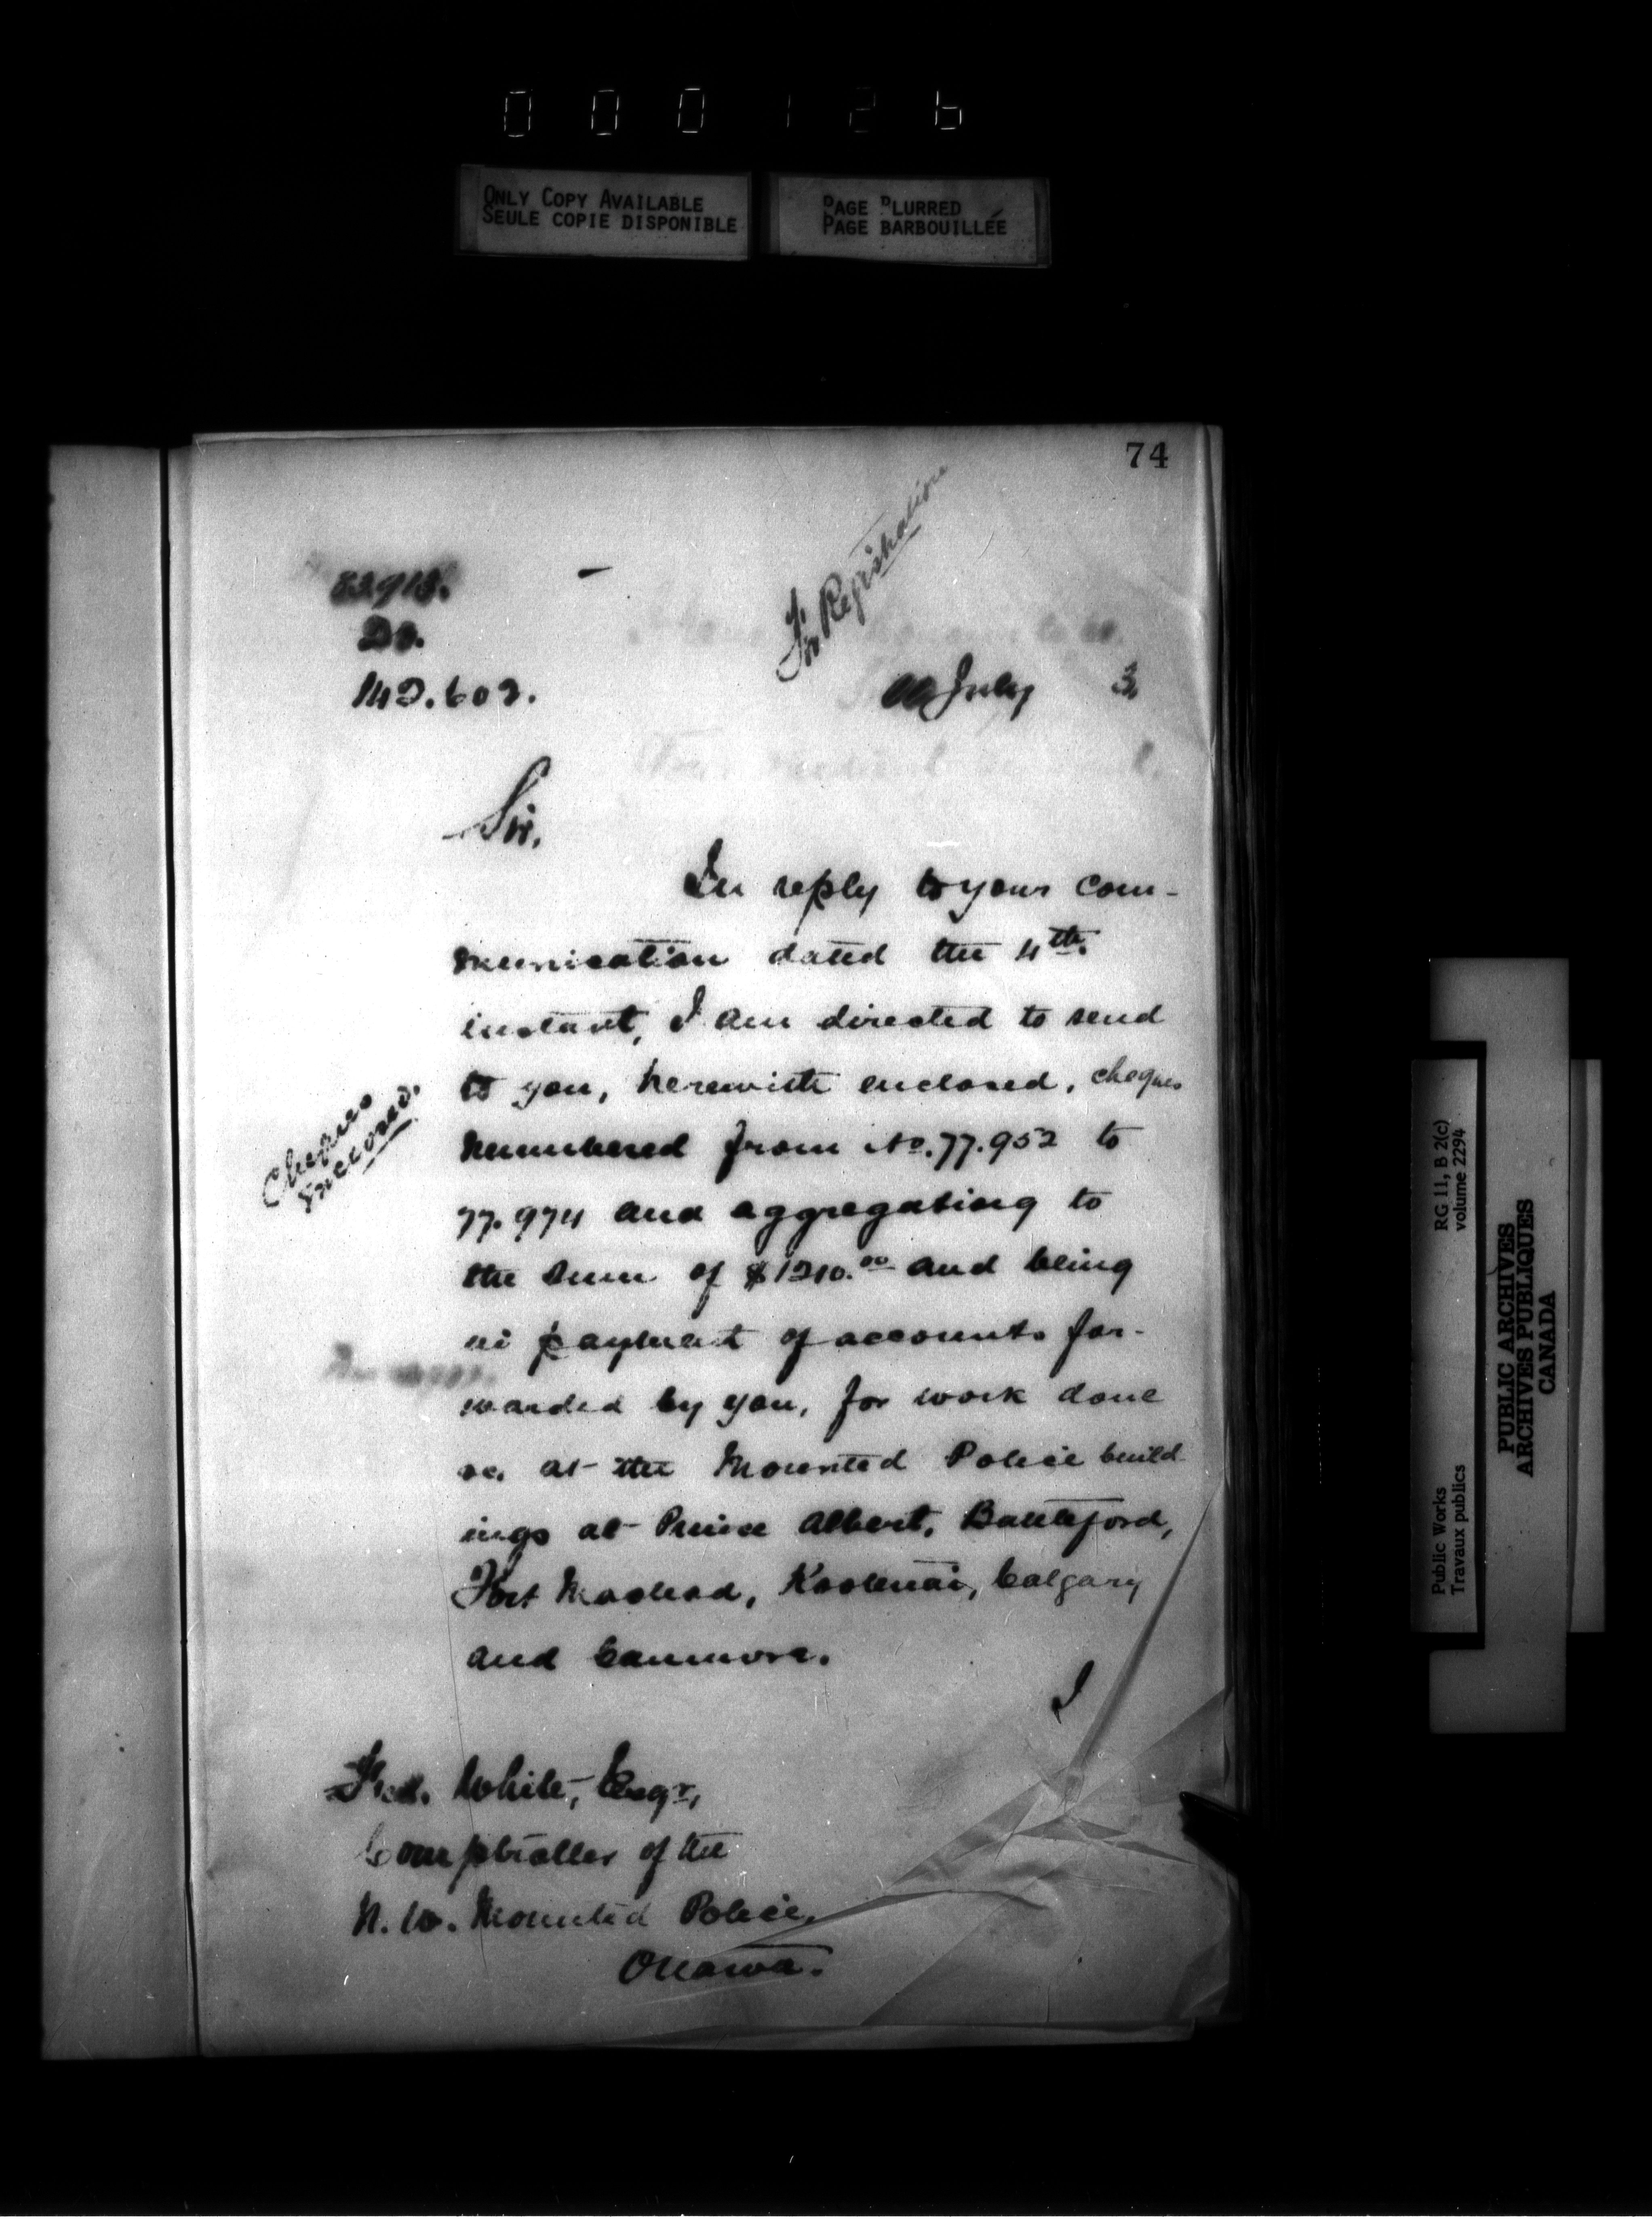 000126
ONLY COPY AVAILABLE
SEULE COPIE DISPONIBLE
PAGE BLURRED
PAGE BARBOUILLÉE
74
For Registration
83913.
Do.
142.602.
July 3,
Sir,
In reply to your com-
munication dated the 4th.
instant, I am directed to send
to you, herewith enclosed, cheques
numbered from No. 77.952 to
77.974 and aggregating to
the sum of $1210.00 and being
in payment of accounts for-
warded by you, for work done
&c. at the Mounted Police build-
ings at Prince Albert, Battleford,
Fort Macleod, Kootenai, Calgary
and Canmore.
Cheques
Enclosed.
I
Fred. White, Esqr,
Comptroller of the
N.W. Mounted Police,
Ottawa.
Public Works
Travaux publics
RG 11, B 2(c)
volume 2294
PUBLIC ARCHIVES
ARCHIVES PUBLIQUES
CANADA